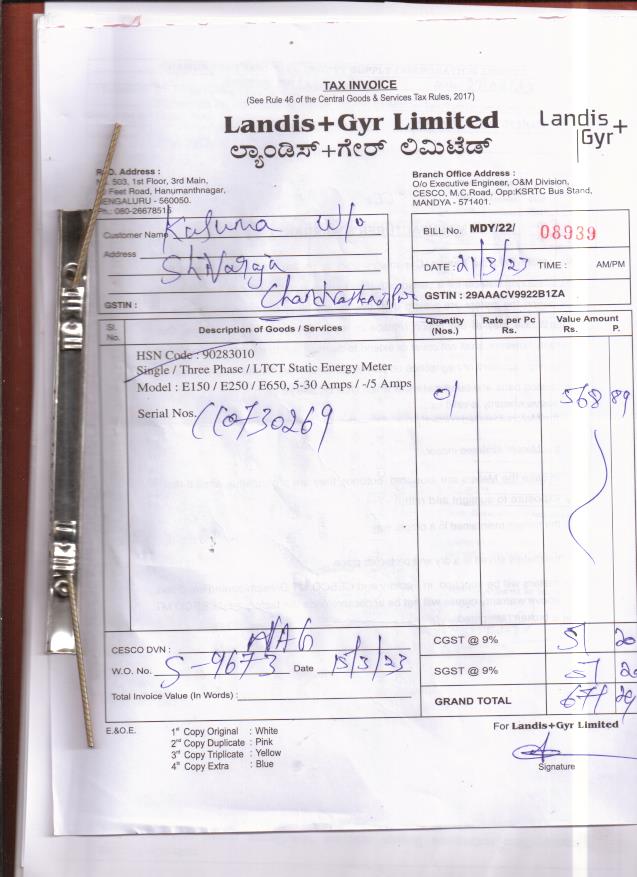 TAX INVOICE
(See Rule 46 of the Central Goods & Services Tax Rules, 2017)
Landis+Gyr Limited
ಲ್ಯಾಂಡಿಸ್+ಗೇರ್ ಲಿಮಿಟೆಡ್
Landis+
Gyr
Address :
503, 1st Floor, 3rd Main,
Feet Road, Hanumanthnagar,
BENGALURU - 560050.
Ph.: 080-26678515
Branch Office Address :
O/o Executive Engineer, O&M Division,
CESCO, M.C.Road, Opp:KSRTC Bus Stand,
MANDYA - 571401.
Customer Name W/o
Address Shivaraja
GSTIN :
BILL No. MDY/22/ 08939
DATE : 21/3/23 TIME : AM/PM
GSTIN : 29AAACV9922B1ZA
Sl. No. Description of Goods / Services Quantity (Nos.) Rate per Pc Rs. Value Amount Rs. P.
HSN Code : 90283010
Single / Three Phase / LTCT Static Energy Meter
Model : E150 / E250 / E650, 5-30 Amps / -/5 Amps 01 568 89
Serial Nos. CC0730269
CESCO DVN : NAG
W.O. No. S-9673 Date 15/3/23
Total Invoice Value (In Words) :
CGST @ 9% 51 20
SGST @ 9% 51 20
GRAND TOTAL 671
E.&O.E.
1st Copy Original : White
2nd Copy Duplicate : Pink
3rd Copy Triplicate : Yellow
4th Copy Extra : Blue
For Landis+Gyr Limited
Signature